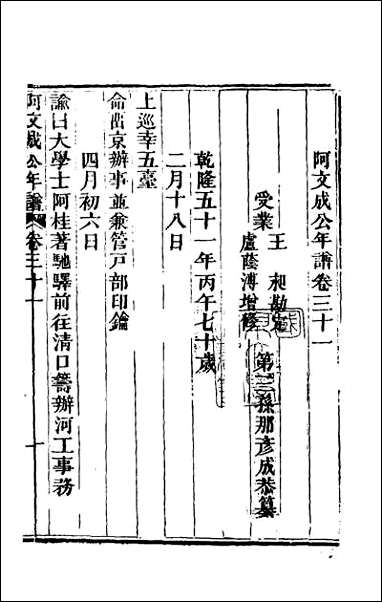 阿文成公年譜卷三十一
第三孫那彥成恭纂
受業
王昶勘定
盧蔭溥增修
乾隆五十一年丙午七十歲
二月十八日
上巡幸五臺
命留京辦事並兼管戶部印鑰
四月初六日
諭曰大學士阿桂著馳驛前往清口籌辦河工事務
阿文成公年譜
卷三十一
一